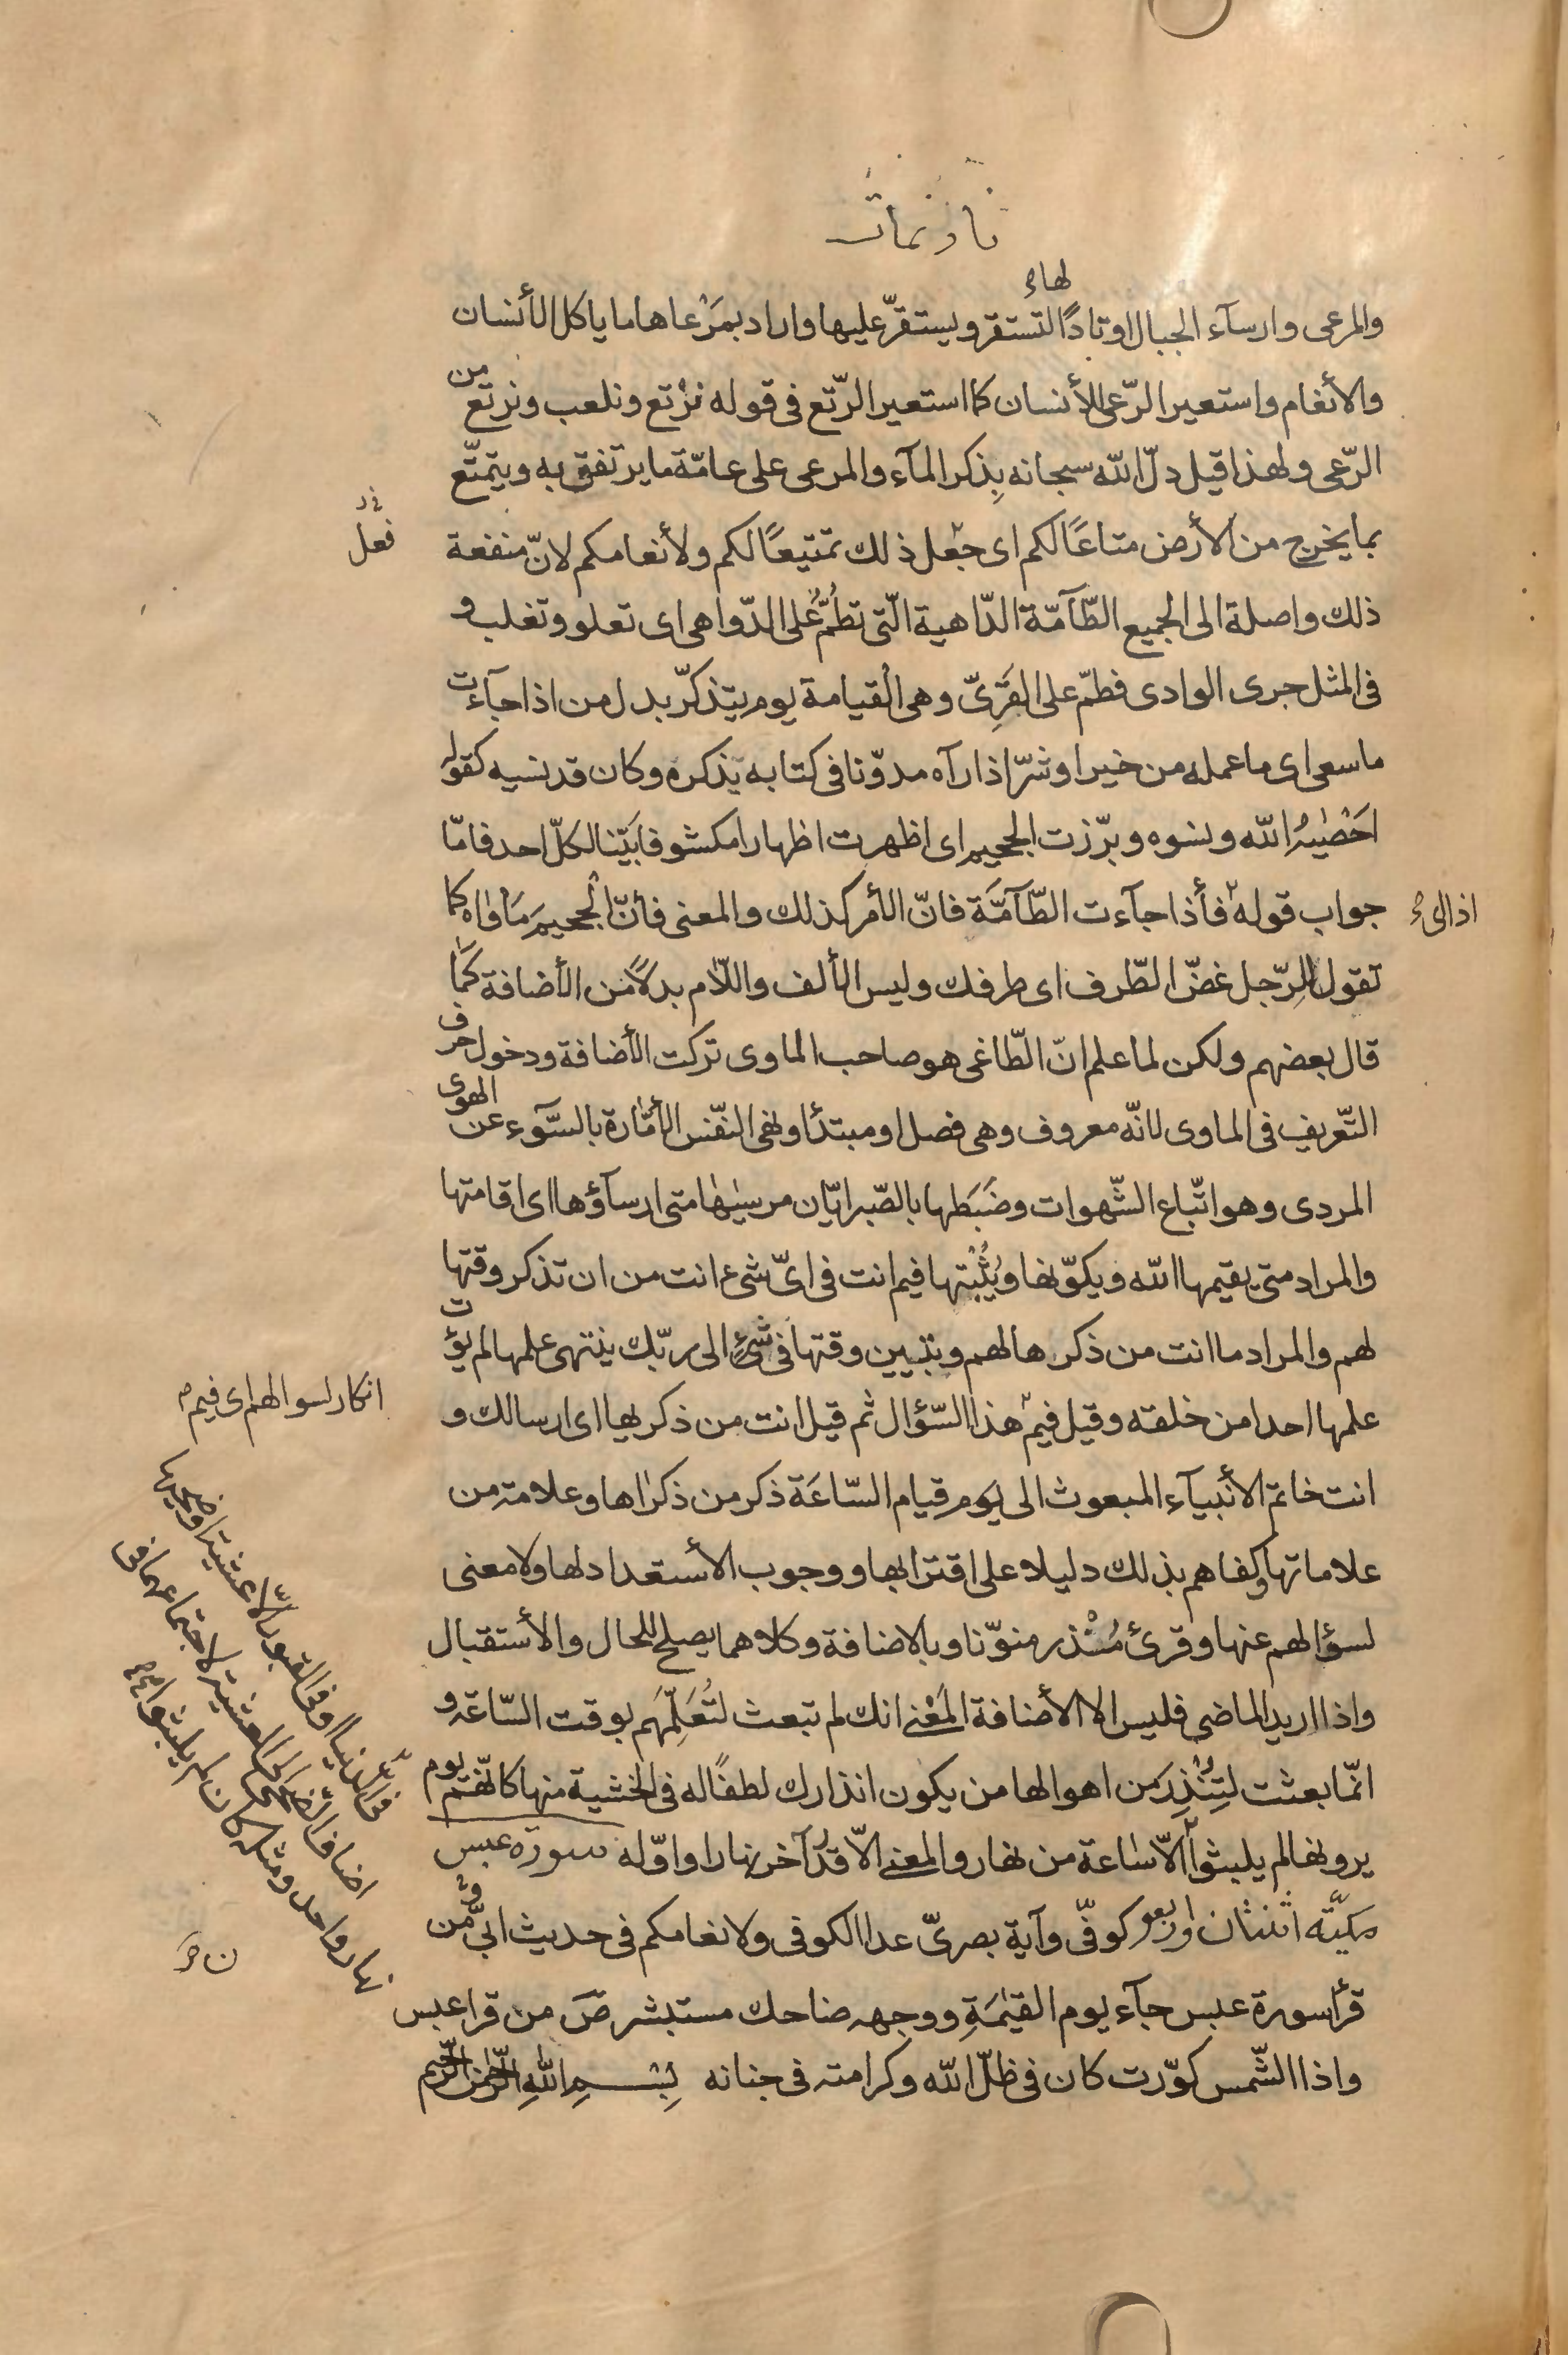 نازعات
والمرعى وارسآء الجبال اوتادًا لها لتستقر ويستقرّ عليها واراد بمَرْعاها ما ياكل الأنسان
والأنعام واستعير الرّعى للأنسان كما استعير الرّتع فى قوله نرْتع ونلعب ونرتع من
الرّعى ولهذا قيل دلّ الله سبحانه بِذكر المآء والمرعى على عامّة ما يرتفق به ويتمتّع
بما يخرج من الأرض متاعًا لكم اى جعل ذلك تمتيعًا لكم ولأنعامكم لانّ منفعة
ذلك واصلة الى الجميع الطّآمّة الدّاهية الّتى تطُمُّ على الدّواهى اى تعلو وتغلب و
فى المثل جرى الوادى فطمّ على القَرِىّ وهى القيامة يوم يتذكّر بدل من اذا جآءت
ما سعى اى ما عمله من خير او شرّ اذا رآه مدوّنا فى كتابه يذكره وكان قد نسيه كقوله
احْصٰيهُ الله ونسوه وبرّزت الجحيم اى اظهرت اظهارا مكشوفا بَيّنا لكلّ احد فامّا
جواب قوله فأذا جآءت الطّآمَّة فانّ الأمر كذلك والمعنى فأنّ الْجحيمَ مَاْواه كما
تقول للرّجل غضّ الطّرف اى طرفك وليس الألف واللّام بدلًا من الأضافة كَمَا
قال بعضهم ولكن لما علم انّ الطّاغى هو صاحب الماوى تركت الأضافة ودخول حرف
التّعريف فى الماوى لانّه معروف وهى فصل او مبتدأ ونهى النفّس الأمّارة بالسّوء عن الهوى
المردى وهو اتّباع الشّهوات وضَبَطها بالصّبر ايّان مرسيٰها متى ارسآؤها اى اقامتها
والمراد متى يقيمها الله ويكوّنها ويُثْبتها فيم انت فى اىّ شىء انت من ان تذكر وقتها
لهم والمراد ما انت من ذكرها لهم وتبيين وقتها فى شئٍ الى ربّك ينتهى علمها لم يؤت
علمها احدا من خلقه وقيل فيم هذا السّؤال ثم قيل انت من ذكريها اى ارسالك و
انت خاتم الأنبيآء المبعوث الى يوم قيام السّاعَة ذكر من ذكراها وعلامة من
علاماتها وكفاهم بذلك دليلا على اقترابها ووجوب الأستعداد لها ولا معنى
لسؤالهم عنها وقرئ مُنْذر منوّنا وبالاضافة وكلاهما يصلح للحال والأستقبال
واذا اريد الماضى فليس الا الأضافة المَعْنے انك لم تبعث لتُعَلِّمَهم بوقت السّاعة و
انّما بعثت لتُنْذِرَ من اهوالها من يكون انذارك لطفًا له فى الخشية منها كانّهم يوم
يرونها لم يلبثوا الّا سٰاعة من نهار والمعنے الّا قدْرَ آخر نهار او اوّله سورة عبس
مكيّة اثنتان واربعو كوفىّ وآية بصرىّ عدا الكوفى ولانعامكم فى حديث ابىّ ومن
قرأ سورة عبس جآء يوم القيٰمَةِ ووجهه ضاحك مستبشر صَ من قرا عبس
واذا الشّمس كوّرت كان فى ظلّ الله وكرامته فى جنانه بِسْــمِ اللهِ الرّحمٰن الرّحيم
فعل
اذا لىٔ
انكار لسوالهم اى فيم
فى الدّنيا او فى القبور الّا عشيّة او ضحيها
اضاف الضحى الى العشية لاجتماعهما فى
نهار واحد ومثله كان لم يلبثوا